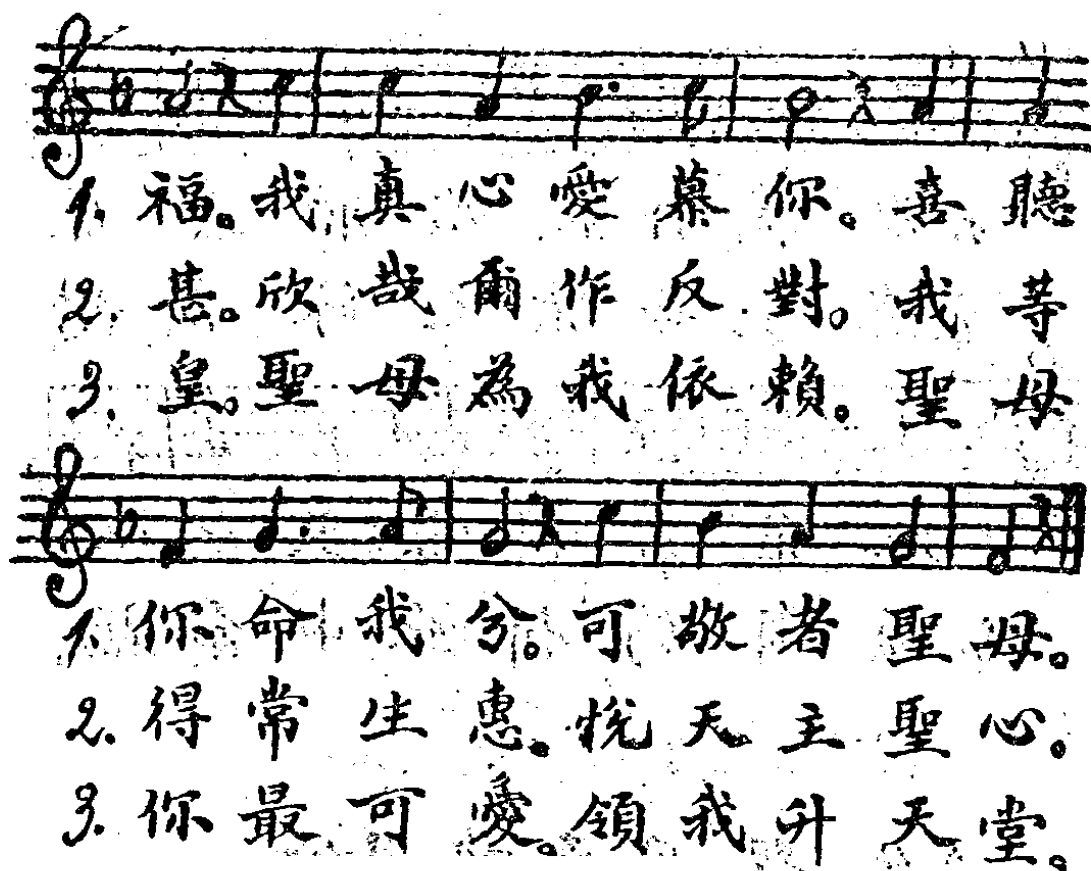 1. 福。我真心愛慕你。喜聽
2. 甚。欣哉爾作反對。我等
3. 皇。聖母為我依賴。聖母
1. 你命我兮。可敬者聖母。
2. 得常生惠。悅天主聖心。
3. 你最可愛。領我升天堂。